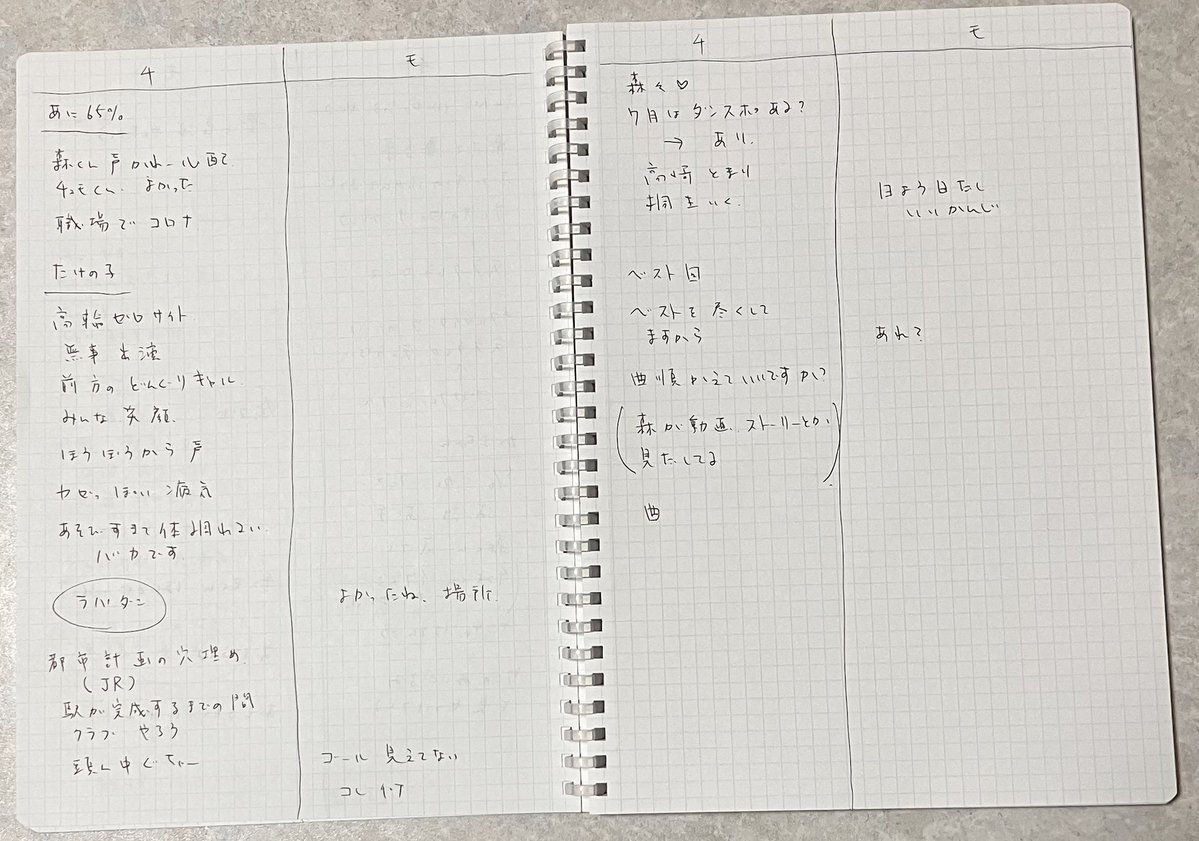 4
モ
あに65%
森くん 声かれ
4 モくん よかった
職場でコロナ
たけの子
高輪ゼロサイト
無事 出演
前方の どんぐりギャル
みんな 笑顔
ほうぼうから 声
カゼっぽい 病気
あそびすぎて体調わるい
バカです
よかったね、場所。
都市計画の穴埋め
(JR)
駅が完成するまでの間
クラブ やろう
頭ん中ぐちゃー
ゴール 見えてない
4
モ
森々♡
7月はダンスホ ある?
→ あり.
高崎 とまり
日よう日だし
いいかんじ
ベスト回
ベストを尽くして
ますから
あれ?
曲順かえていいですか?
(森が動画、ストーリーとか
見だしてる)
曲